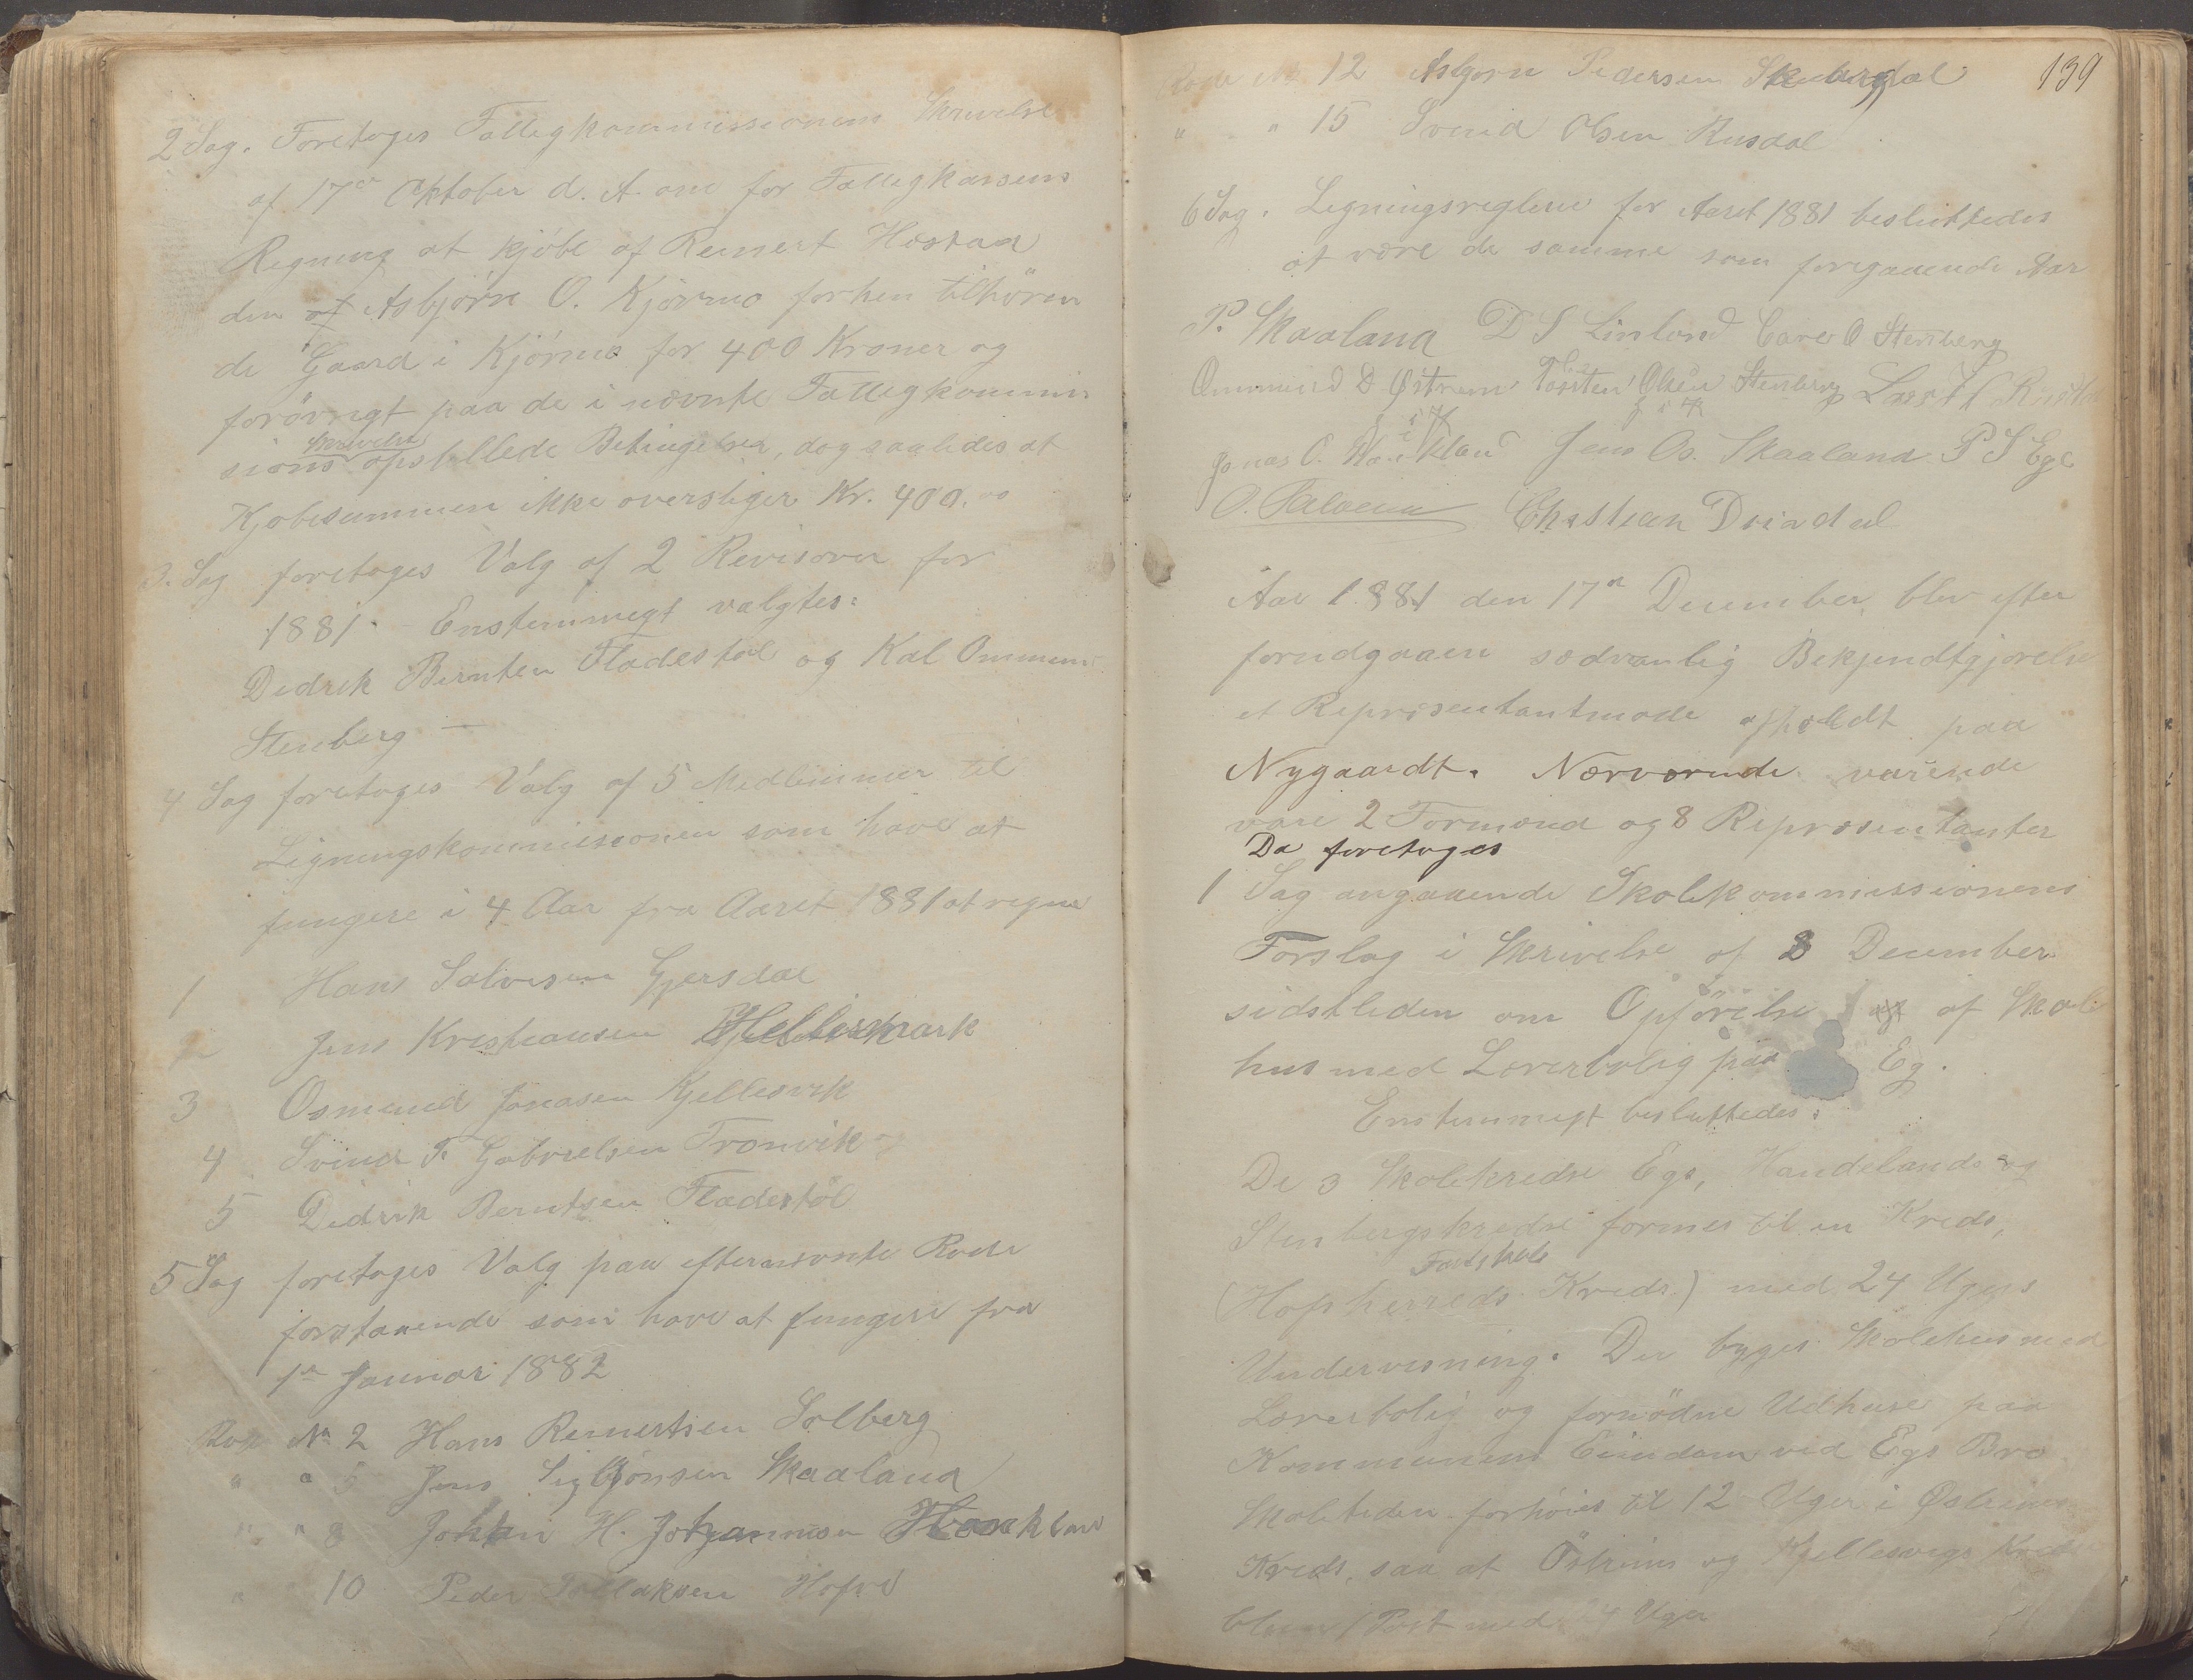 2 Sag. Foretoges Fattigkommissionens Skrivelse
af 17de Oktober d. A. om for Fattigkassens
Regning at kjöbe af Reinert Hostad
den af Asbjörn O. Kjörmo forhen tilhören
de Gaard i Kjörmo for 400 Kroner og
forövrigt paa de i nævnte Fattigkommis
Skrivelse
sions opstillede Betingelser, dog saaledes at
Kjöbesummen ikke overstiger Kr. 400.00
3. Sag foretoges Valg af 2 Revisorer for
1881. Enstemmigt valgtes:
Dedrik Bernten Fladestöl og Kal Ommun
Stenberg —
4 Sag foretoges Valg af 5 Medlemmer til
Ligningskommissionen som have at
fungere i 4 Aar fra Aaret 1881 at regne
1 Hans Salvesen Gjersdal
2 Jens Kristiansen Hellesmark
3 Osmund Jonasen Kjellesvik
4 Svend T. Gabrielsen Tronvik
5 Didrik Berntsen Fladestöl
5 Sag foretoges Valg paa efternævnte Rode
forstaaende som have at fungere fra
1ste Januar 1882
Rode No 2 Hans Reinertsen Solberg
" " 5 Jens Sigbjönsen Skaaland
" " 8 Johan H. Johannesen Haukland
" 10 Peder Tollaksen Hofve
139
Rode No 12 Asbjørn Pedersen Skubesdal
" " 15 Svend Olsen Rusdal
6 Sag. Ligningsreglerne for Aaret 1881 besluttedes
at være de samme som foregaaende Aar
P. Skaaland D S Linland Carel O Stenberg
Ommund D Østrem Tosten Olsen Stenberg Lars
Jonas O. Haukland Jens Os. Skaaland P S Ege
O. Salvesen Chrstian Dridal
Aar 1881 den 17de December blev efter
forudgaaen sædvanlig Bekjendtgjørelse
et Repræsentantmøde afholdt paa
Nygaardt. Nærværende varende
vare 2 Formænd og 8 Repræsentanter
Da foretoges
1 Sag angaaende Skolekommissionens
Forslag i Skrivelse af 8 December
sidstleden om Opförelse af Skole
hus med Lærerbolig paa Eg.
Enstemmigt besluttedes:
De 3 Skolekredse Egs, Haudelands og
Stenbergskredse formes til en Kreds,
Fastskole
(Hofsherreds Kreds) med 24 Ugers
Undervisning. Der bygges Skolehus med
Lærerbolig og fornödne Udhuse paa
Kommunens Eiendom ved Egs Bro
Skoletiden forhöies til 12 Uger i Østrems
Kreds, saa at Östrems og Kjellesvigs Kredse
bliver 1 Post med 24 Uger